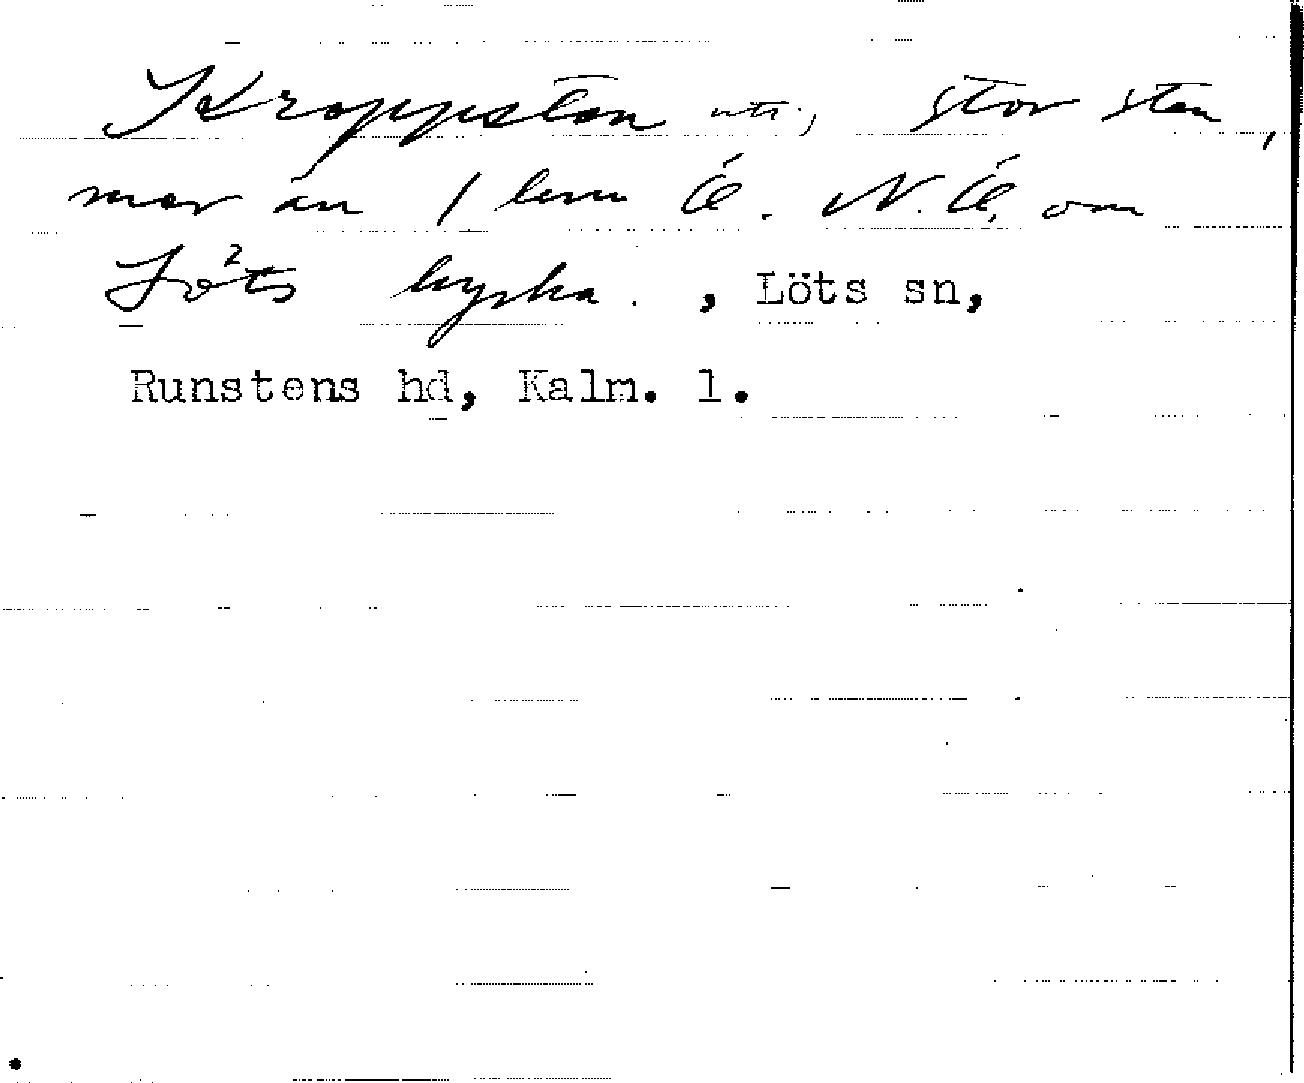 Kroppsten utr., stor sten,
mer än 1 km Ö. N.Ö. om
Löts kyrka. , Löts sn,
Runstens hd, Kalm. l.